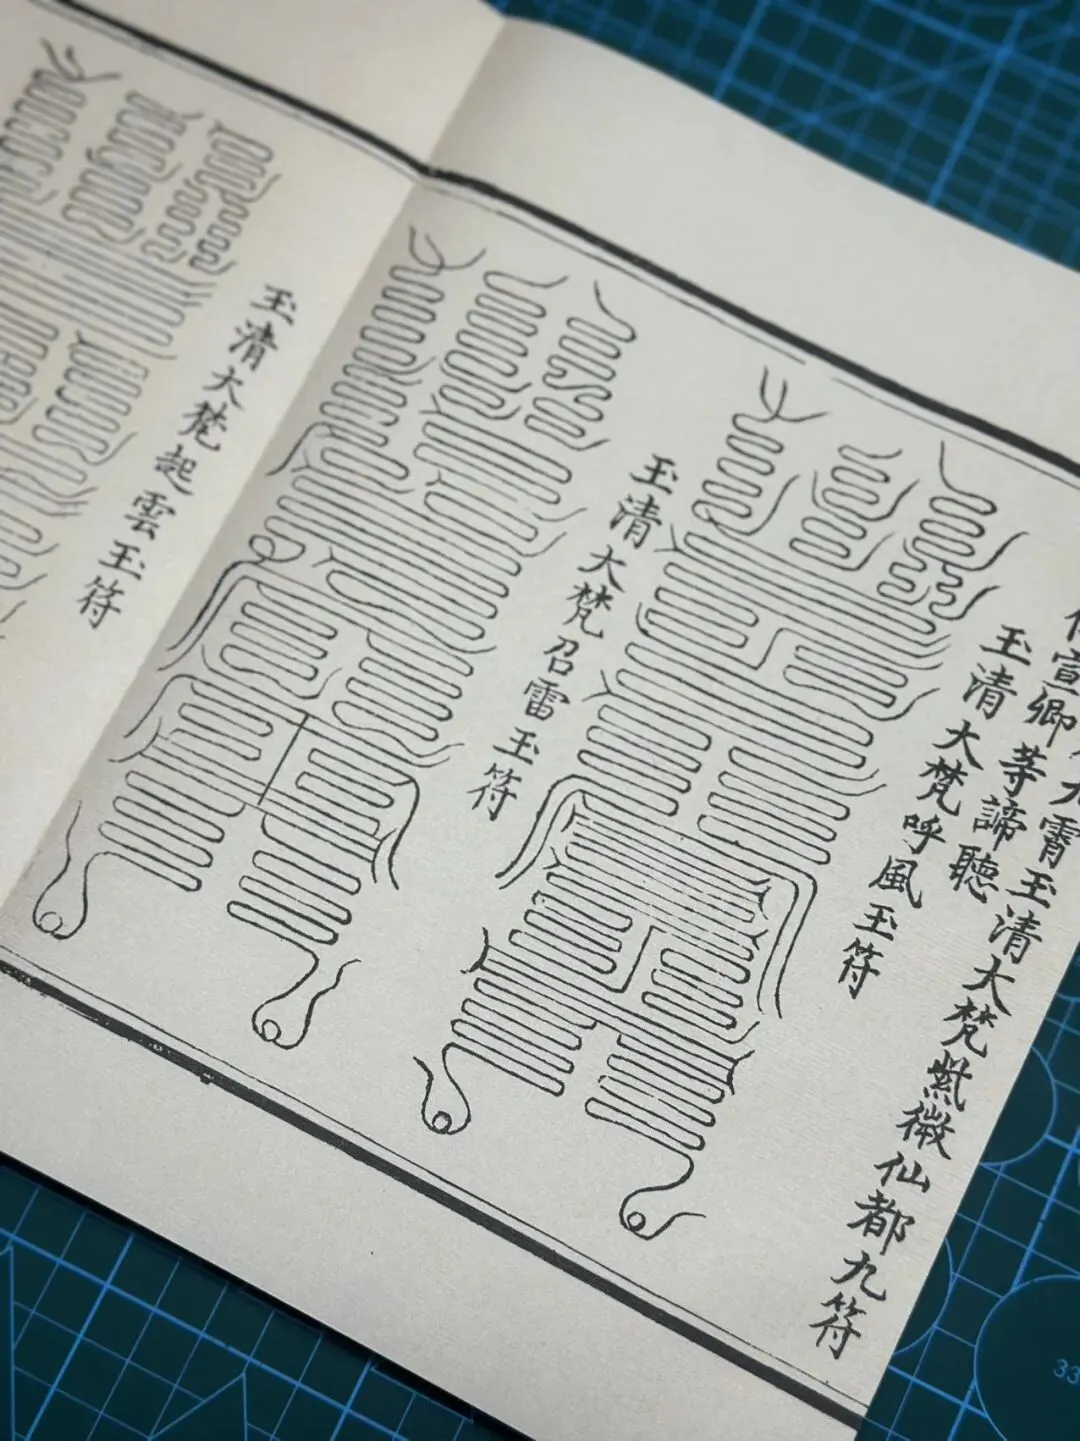 九霄玉清大梵紫微仙都九符
宣卿等諦聽
玉清大梵呼風玉符
玉清大梵召雷玉符
玉清大梵起雲玉符
33